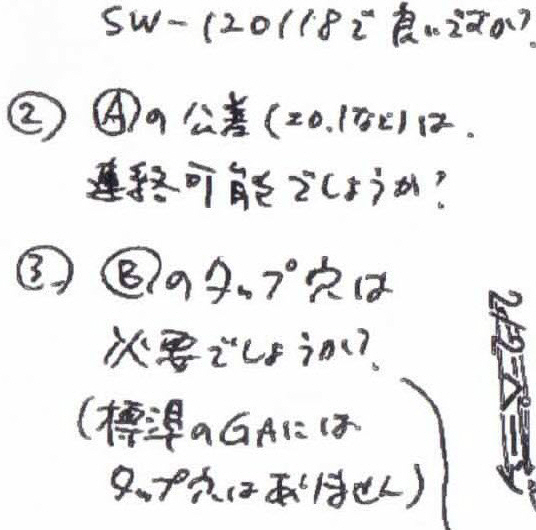 SW-120118で良いですか?
② Ⓐの公差(±0.1など)は、
連絡可能でしょうか?
③ Ⓑのタップ穴は
必要でしょうか?
(標準のGAには
タップ穴はありません)